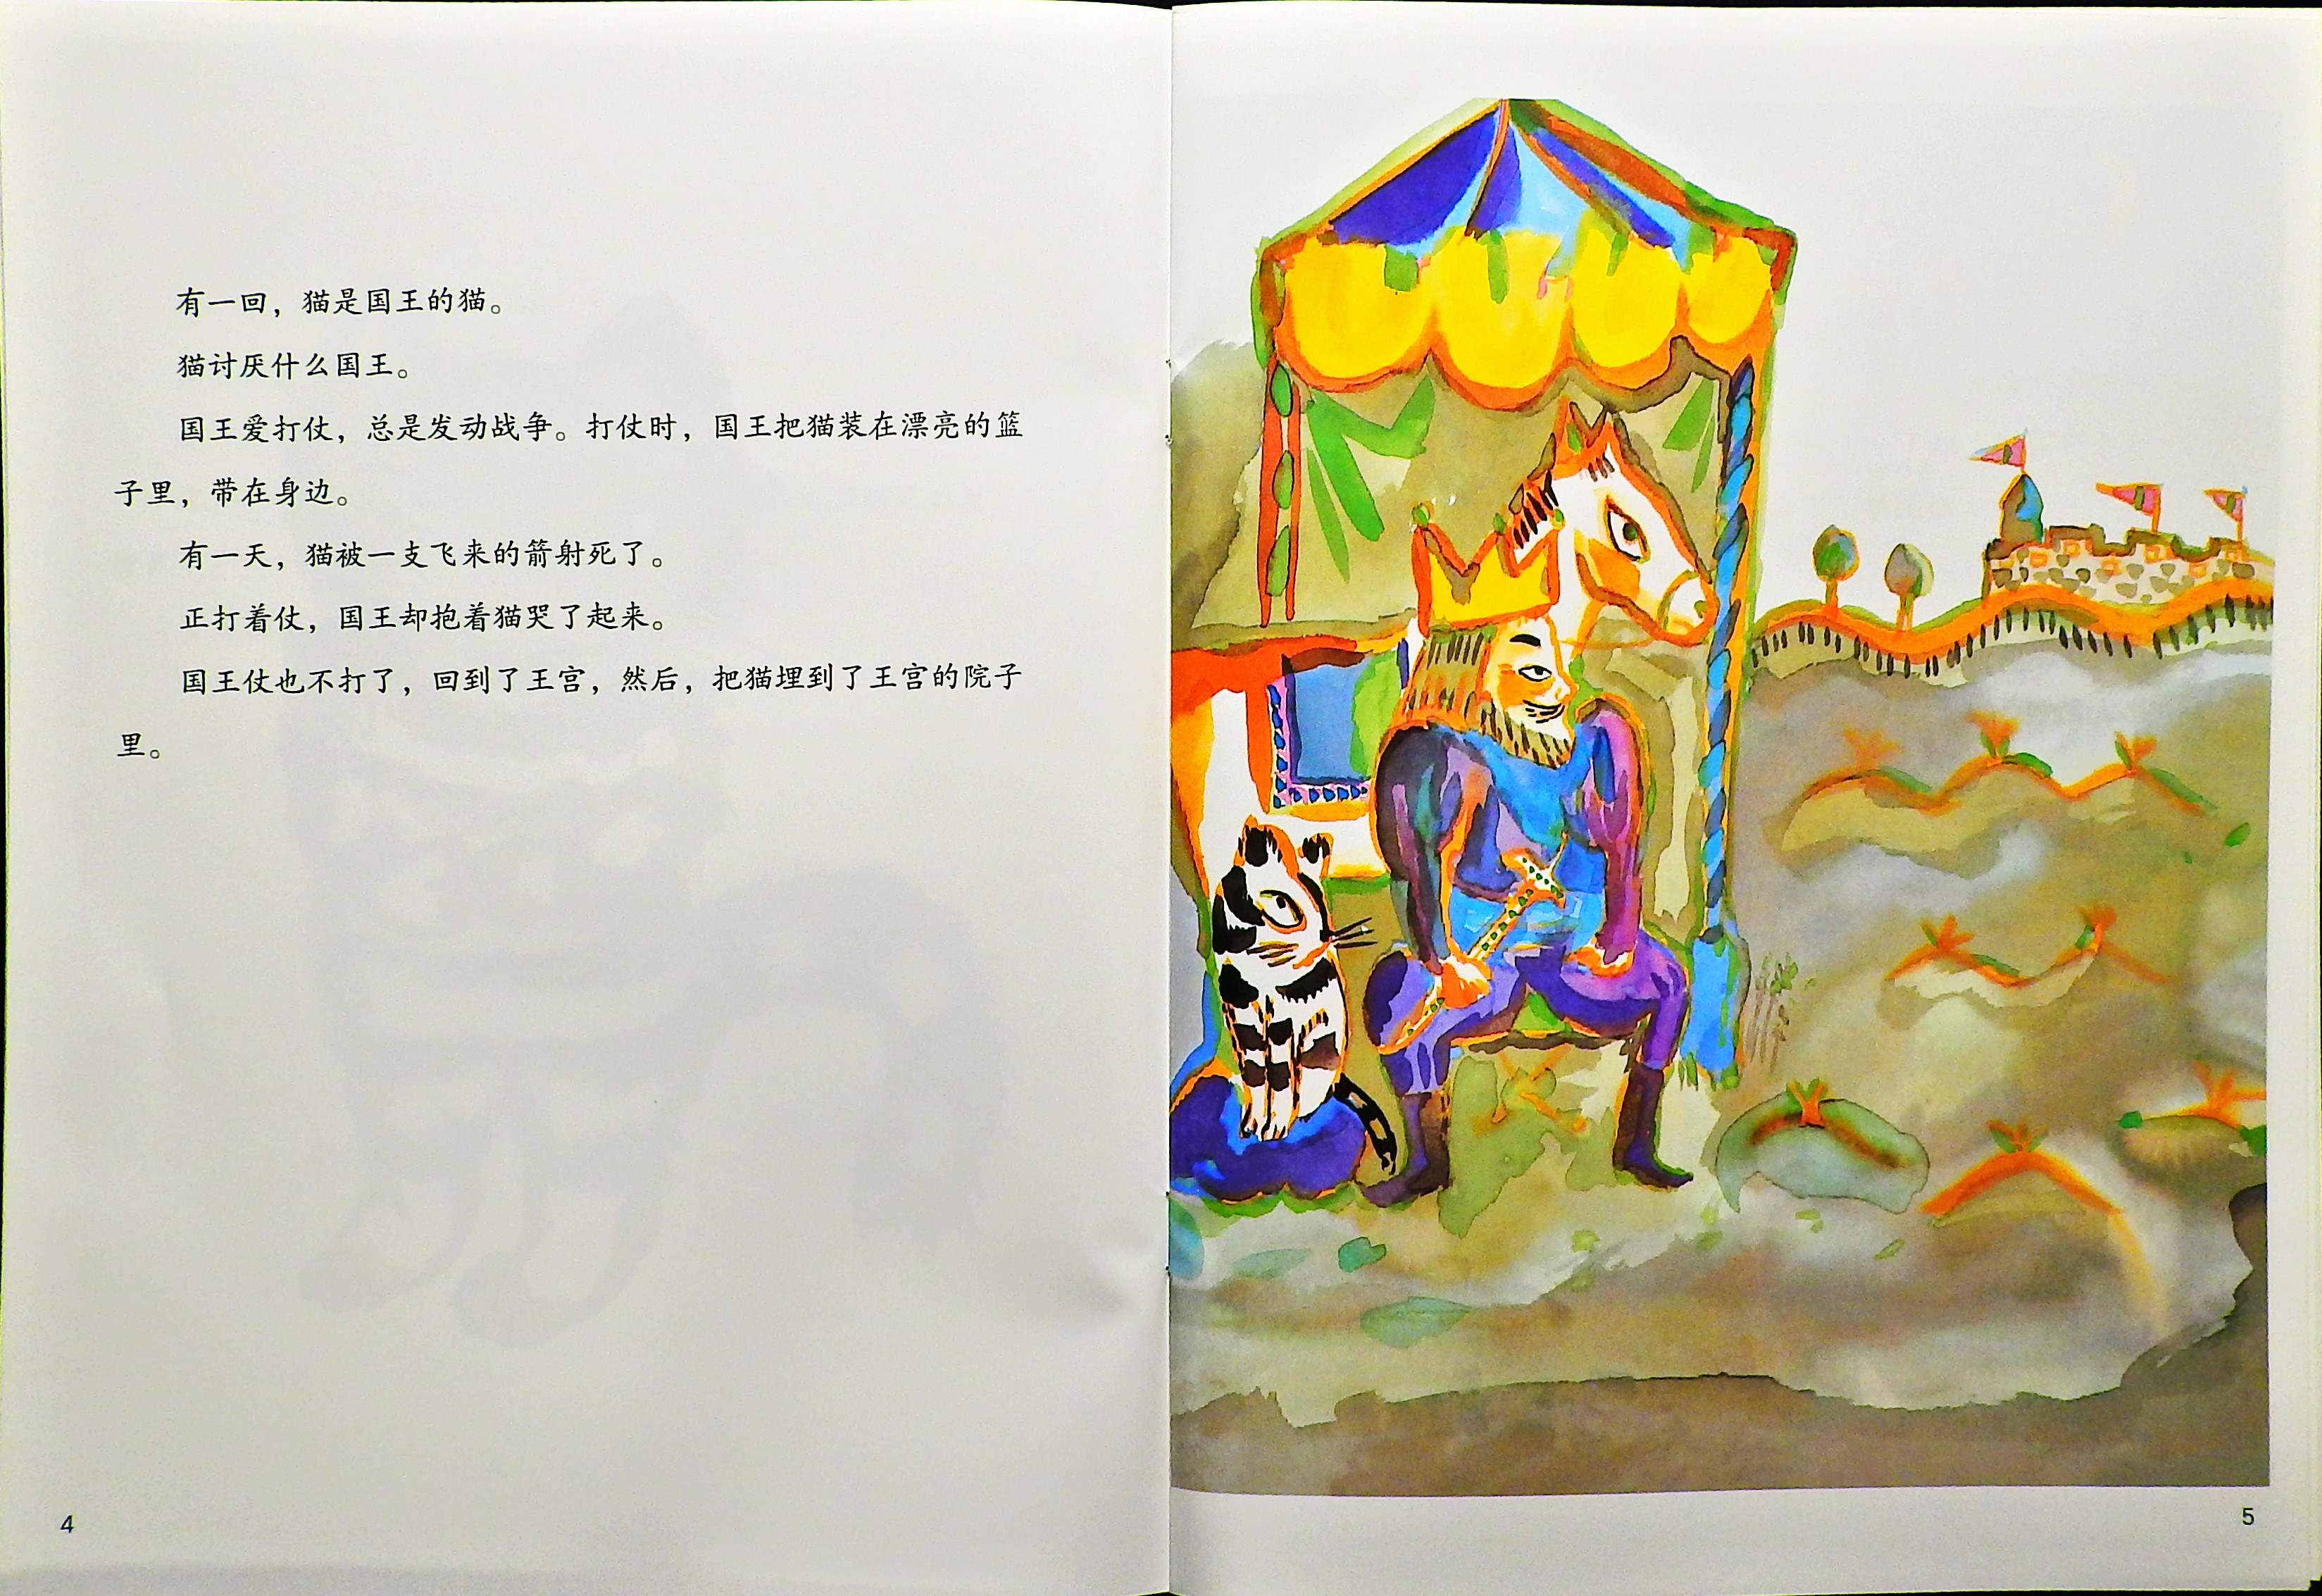 有一回，猫是国王的猫。
猫讨厌什么国王。
国王爱打仗，总是发动战争。打仗时，国王把猫装在漂亮的篮
子里，带在身边。
有一天，猫被一支飞来的箭射死了。
正打着仗，国王却抱着猫哭了起来。
国王仗也不打了，回到了王宫，然后，把猫埋到了王宫的院子
里。
4
5